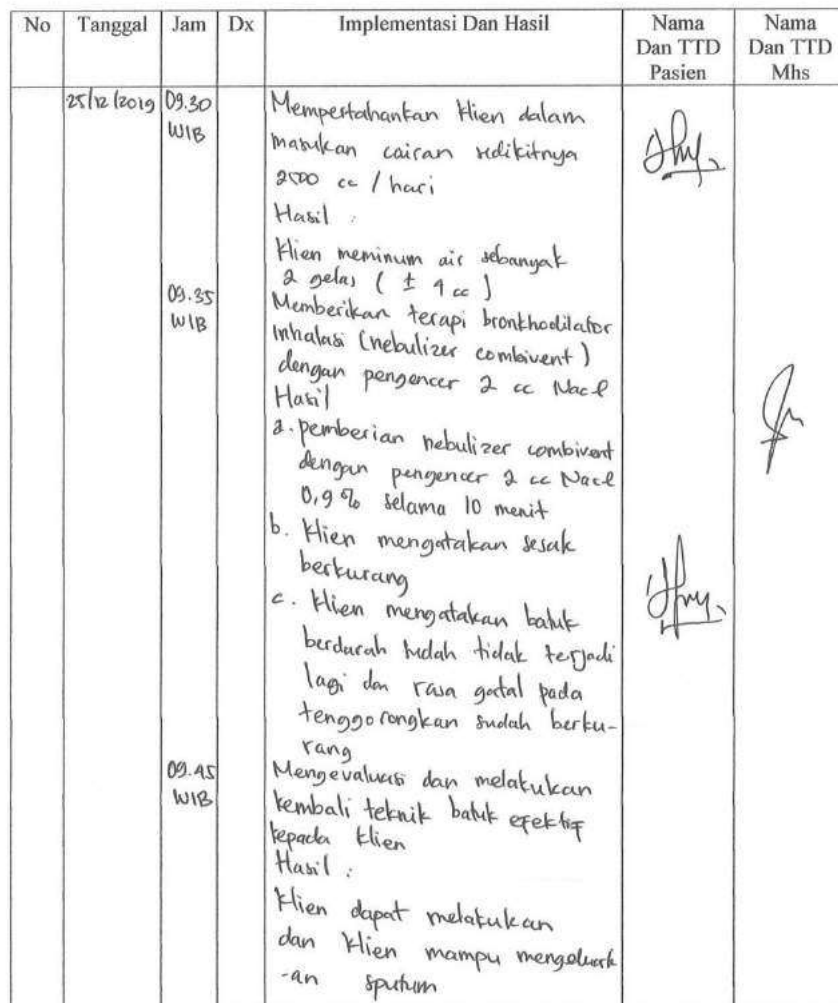 No Tanggal Jam Dx Implementasi Dan Hasil Nama Dan TTD Pasien Nama Dan TTD Mhs
25/12/2019 09.30 WIB Mempertahankan klien dalam
masukan cairan sedikitnya
2500 cc / hari
Hasil :
Klien meminum air sebanyak
2 gelas ( ± 4 cc )
09.35 WIB Memberikan terapi bronkhodilator
inhalasi (nebulizer combivent)
dengan pengencer 2 cc Nacl
Hasil
a. pemberian nebulizer combivent
dengan pengencer 2 cc Nacl
0,9 % selama 10 menit
b. Klien mengatakan sesak
berkurang
c. Klien mengatakan batuk
berdarah sudah tidak terjadi
lagi dan rasa gatal pada
tenggorongkan sudah berku-
rang
09.45 WIB Mengevaluasi dan melakukan
kembali teknik batuk efektif
kepada klien
Hasil :
Klien dapat melakukan
dan klien mampu mengeluark
-an sputum